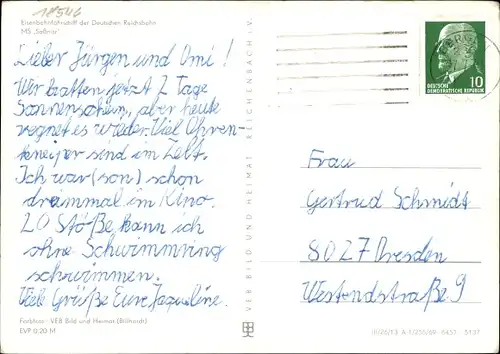 18546
Eisenbahnfährschiff der Deutschen Reichsbahn
MS „Saßnitz"
Lieber Jürgen und Omi!
Wir hatten jetzt 2 Tage
Sonnenschein, aber heute
regnet es wieder. Viel Ohren-
kneiper sind im Zelt.
Ich war (son) schon
dreimmal im Kino.
20 Stöße kann ich
ohne Schwimmring
schwimmen.
Viele Grüße Eure Jaqueline.
Farbfoto: VEB Bild und Heimat
EVP 0,20 M
VEB BILD UND HEIMAT REICHENBACH i. V.
10
DEUTSCHE
DEMOKRATISCHE REPUBLIK
Frau
Gertrud Schmidt
8027 Dresden
Westendstraße 9
III/26/13 A 1/255/69 6457 5137